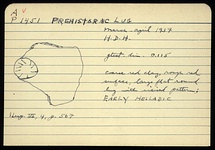 A
P 1451 PREHISTORIC LUG
March-April 1937
H.D.H.
gtest dim. 0.115
coarse red clay, rough red
surface, large flat round
lug with incised pattern;
EARLY HELLADIC
Hesp. VI, 4, p. 567